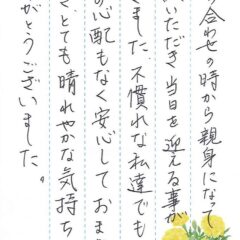 合わせの時から親身になって
いただき当日を迎える事が
ました。不慣れな私達でも
の心配もなく安心しておま
、とても晴れやかな気持ち
がとうございました。